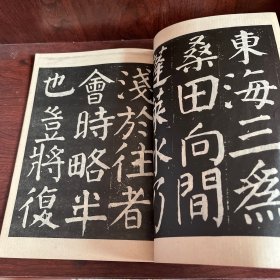 東海三爲
桑田向間
蓬萊水乃
淺於往者
會時略半
也豈將復